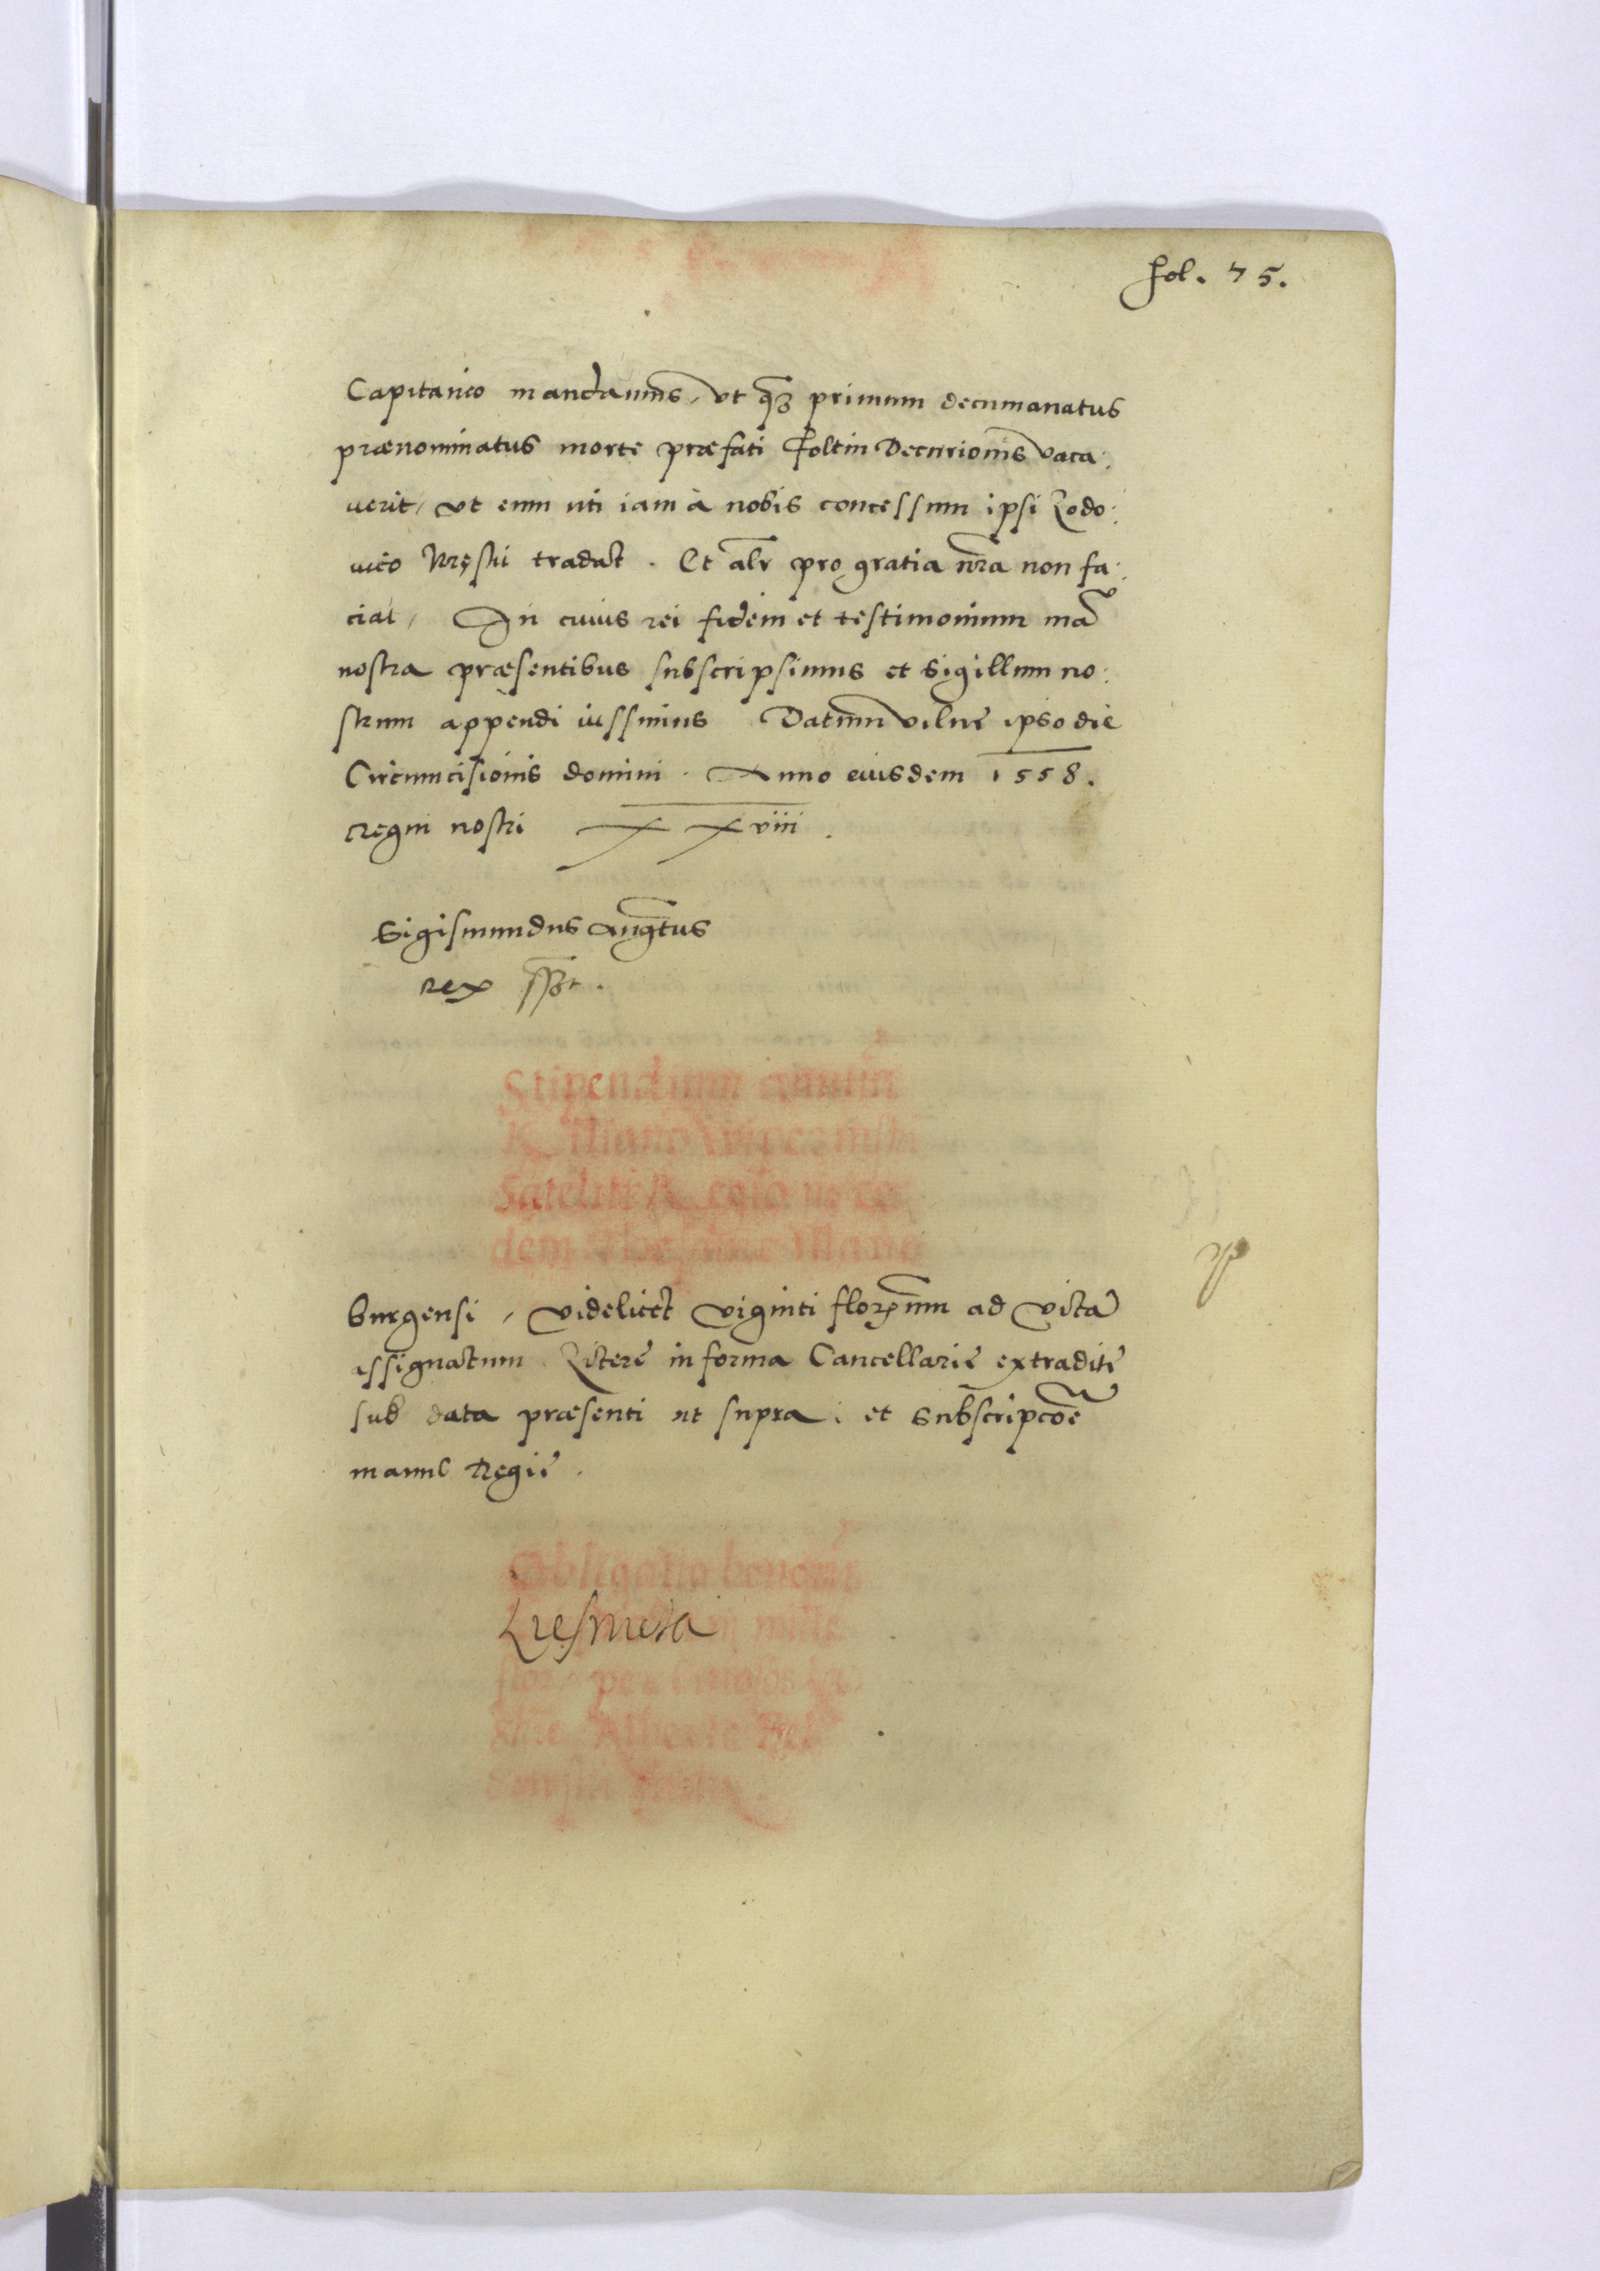 fol. 75.
Capitaneo mandamus, vt q̃ȝ primum decumanatus
prænominatus morte præfati Foltin Decurionis vaca:
uerit, vt eum uti iam à nobis concessum ipsi Lodo:
uico tradat. Et alr̃ pro gratia nr̃a non fa:
ciat, In cuius rei fidem et testimonium mãu
nostra præsentibus subscripsimus et sigillum no:
strum appendi iussimus Datum Vilne ipso die
Circumcisionis domini. Anno eiusdem 1558.
regni nostri XXviii.
Sigismundus Augustus
rex sspt.
Stipendium annuũ
Satellitis Regio in eo
dem Theloneo Mariæ
burgensi, videlicet viginti florenum ad vitã
assignatum. Litere in forma Cancellarie extradite
sub data præsenti ut supra: et subscripcõe
manus Regie.
Obligatio bonorũ
mille
flor: per